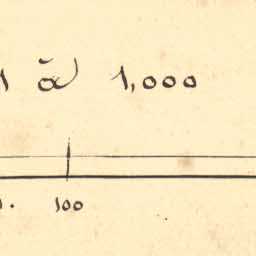 à 1,000
100